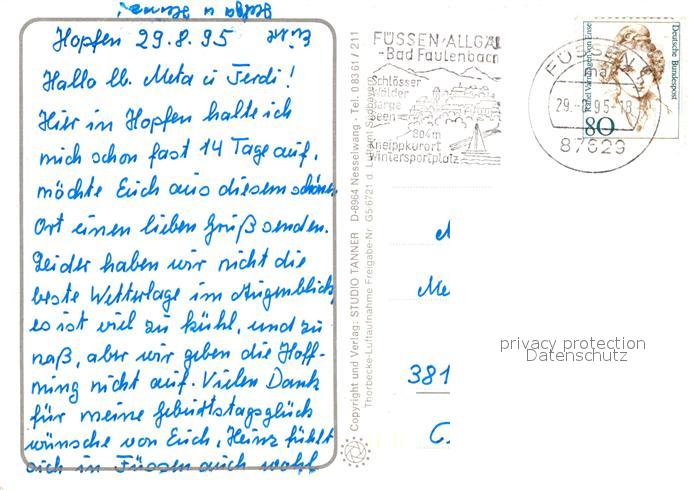 Helga u Heinz!
Hopfen 29.8.95
Hallo lb. Meta u Ferdi!
Hier in Hopfen halte ich
mich schon fast 14 Tage auf,
möchte Euch aus diesem schönen
Ort einen lieben Gruß senden.
Leider haben wir nicht die
beste Wetterlage im Augenblick,
es ist viel zu kühl, und zu
naß, aber wir geben die Hoff-
nung nicht auf. Vielen Dank
für meine Geburtstagsglück
wünsche von Euch, Heinz fühlt
sich in Füssen auch wohl
Copyright und Verlag: STUDIO TANNER D-8964 Nesselwang - Tel. 0 83 61 / 211
Thorbecke-Luftaufnahme Freigabe-Nr. G5/6721 d. Luftamt Südbayern
FÜSSEN/ALLGÄU
-Bad Faulenbach
Schlösser
Wälder
Berge
Seen
804m
Kneippkurort
Wintersportplatz
FÜSSEN
29.-8.95-18
87629
Deutsche Bundespost
Rahel Varnhagen von Ense
80
Me
381
privacy protection
Datenschutz